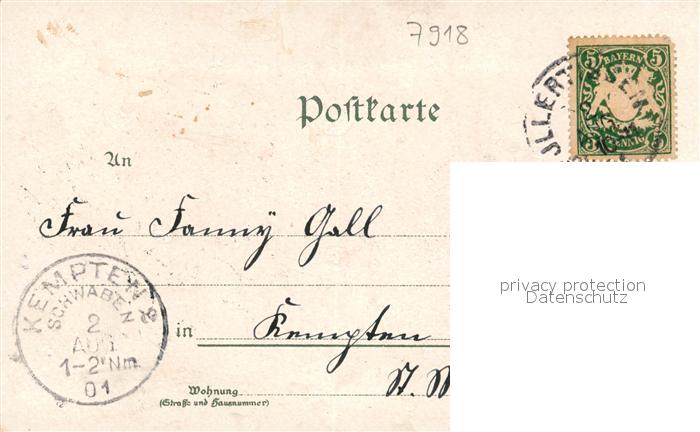 7918
BAYERN
5 5
PFENNIG
JLLERT
Postkarte
An
Frau Fanny Gall
privacy protection
Datenschutz
KEMPTEN 2
SCHWABEN
2
AUG
1-2 Nm.
01
in Kempten
Wohnung
(Straße und Hausnummer)